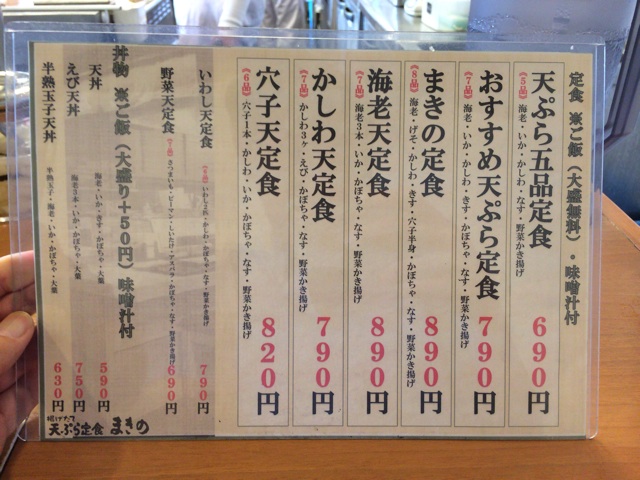 定食 ※ご飯（大盛無料）・味噌汁付
天ぷら五品定食 690円
《5品》 海老・いか・かしわ・なす・野菜かき揚げ
おすすめ天ぷら定食 790円
《7品》 海老・いか・かしわ・きす・かぼちゃ・なす・野菜かき揚げ
まきの定食 890円
《8品》 海老・げそ・かしわ・きす・穴子半身・かぼちゃ・なす・野菜かき揚げ
海老天定食 890円
《7品》 海老3本・いか・かぼちゃ・なす・野菜かき揚げ
かしわ天定食 790円
《7品》 かしわ3ヶ・えび・かぼちゃ・なす・野菜かき揚げ
穴子天定食 820円
《6品》 穴子1本・かしわ・いか・かぼちゃ・なす・野菜かき揚げ
いわし天定食 790円
いわし2匹・かしわ・かぼちゃ・なす・野菜かき揚げ
野菜天定食 690円
《7品》 さつまいも・ピーマン・しいたけ・アスパラ・かぼちゃ・なす・野菜かき揚げ
丼物 ※ご飯（大盛り+50円）味噌汁付
天丼 590円
海老・いか・きす・かぼちゃ・大葉
えび天丼 750円
海老3本・いか・かぼちゃ・大葉
半熟玉子天丼 630円
半熟玉子・海老・いか・かぼちゃ・大葉
揚げたて
天ぷら定食 まきの